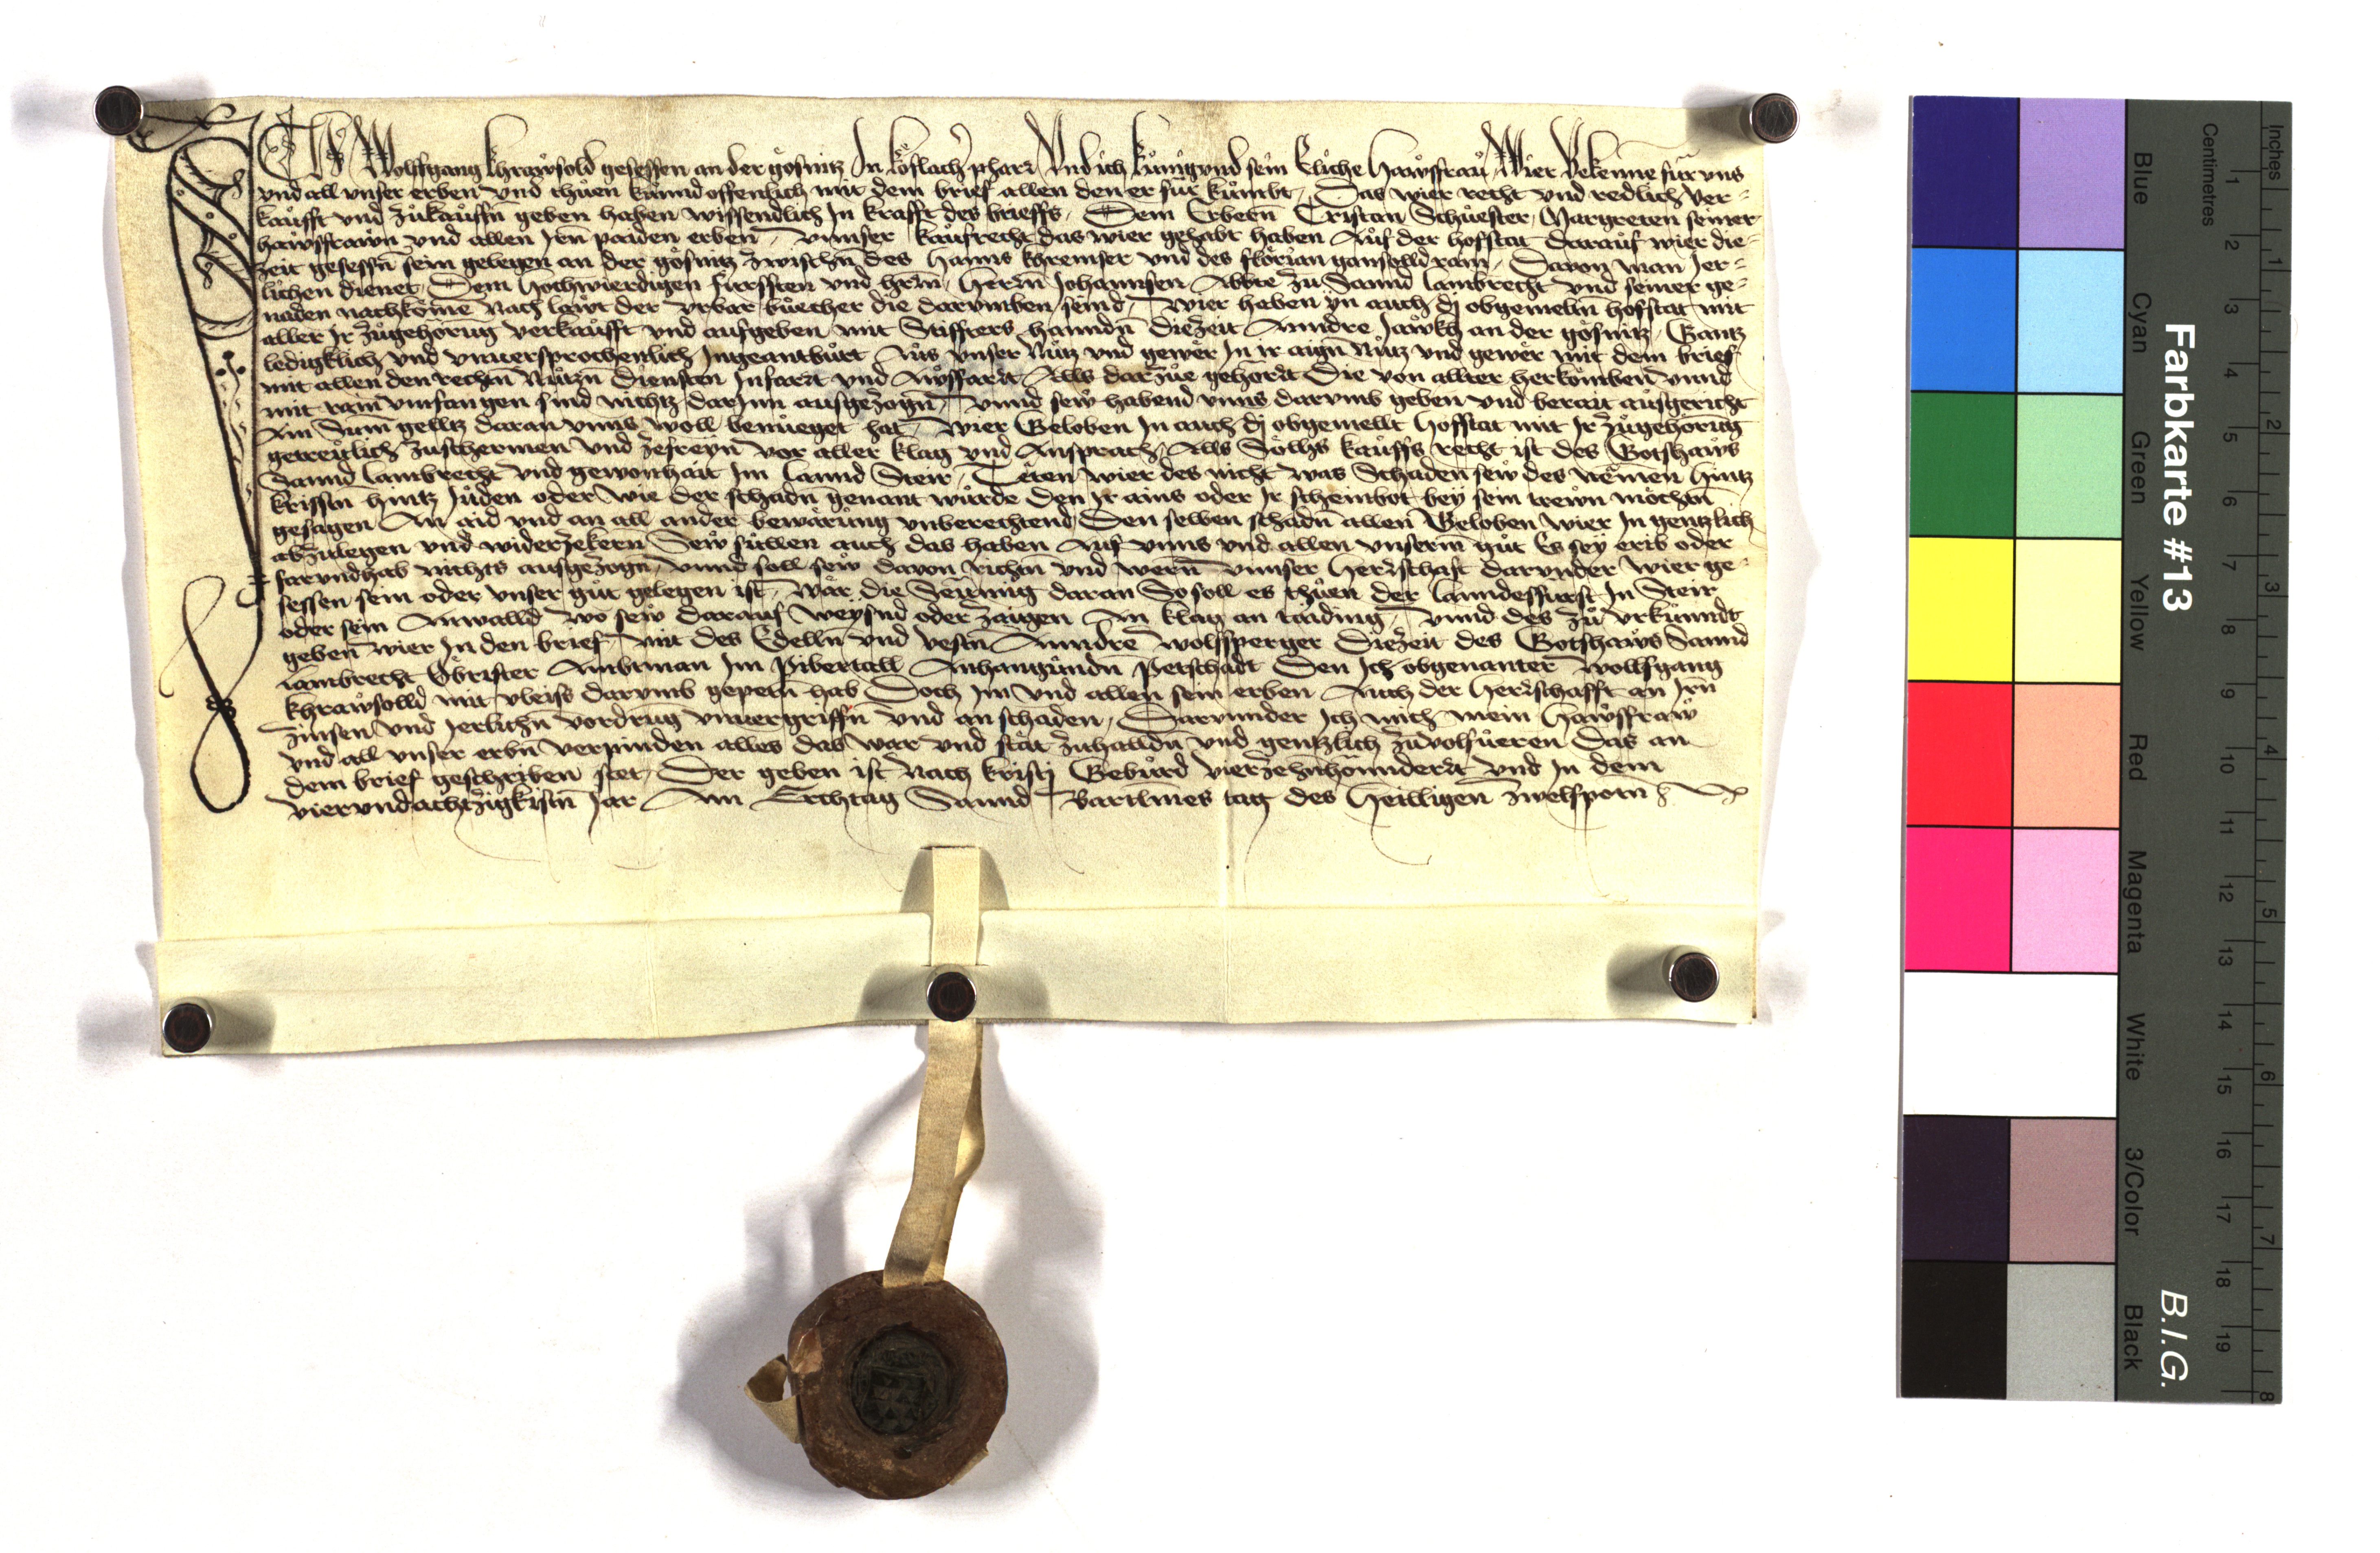 Ich Wolfgang Khrawsold gesessen an der gösnitz In köflacher pharr Vnd ich kunigund sein Eliche Hawsfraw Wier Bekenne für vns
vnd all vnser erben vnd thuen kunnd offenlich mit dem brief allen den er für kumbt, Das wier recht vnd redlich ver-
kaufft vnd zukauffn̄ geben haben wissendlich In krafft des brieffs, Dem Erbern̄ Cristan Schuester, Margreten seiner
hawsfrawn vnd allen Jrn̄ paiden erben, vnnser kaufrecht das wier gehabt haben Auf der hofstat darauf wier die-
zeit gesessn̄ sein gelegen an der gösnitz zwischn̄ des Hanns khremser vnd des florian gansolld rain, Davon man Jer-
lichen dienet, Dem Hochwierdigen fürssten vnd hrn̄, Herrn̄ Johannsen Abbte zu Sannd Lambrecht vnd seiner ge-
naden nachkomē Nach lawt der vrbar buecher die darumben seind, Wier haben yn auch dj obgemeltn̄ hofstat mit
aller Jr zugehörug verkaufft vnd aufgeben mit Stiffters hanndn̄ diezeit Anndre Jawkh an der gösnitz, Gantz
ledigklich vnd vnuersprochenlich Ingeantburt Aus vnser Nutz vnd gewer In ir aign̄ Nutz vnd gewer mit dem brief
mit allen den rechtn̄ Nutzn̄ diensten Infart vnd Ausffart, Alls darzue gehort Die von allter herkomben vnnd
mit rain vmfangen sind nichtz darInn ausgezogn̄, vnnd sew habend vnns darumb geben vnd berait ausgericht
Ain Sum geltz daran vnns woll benueget hat, Wier Geloben In auch dj obgemellt Hofstat mit Jr zugehorug
getreulich zuschermen vnd zefreyn̄ vor aller klag vnd Ansprach, Alls Sölhs kauffs recht ist des Gotshaws
Sannd Lambrecht vnd gewonhait Im Lannd Steir, Teten wier des nicht was Schaden sew des nēmen Hintz
kristn̄ hintz Juden oder wie der schadn̄ genant wurde den Jr ains oder Jr scheinbot bey sein trewn möchtn̄
gesagen An aid vnd an all ander bewärung vnberechtend, Den selben schadn̄ allen Geloben wier In gentzlich
abzulegen vnd widerzekern̄ Sew sullen auch das haben Auf vnns vnd allen vnserm̄ gut Es sey erib oder
farundhab nichts ausgezogn̄ vnnd soll sew davon richtn̄ vnd wern̄ vnnser Herrschaft darunder wier ge-
sessen sein oder vnser gut gelegen ist, wär die Seumng daran So soll es thuen der Lanndesfurst In Steir
oder sein Anwalld wo sew darauf weysnd oder zaigen An klag an taiding, vnnd des zu vrkunndt
geben wier In den brief mit des Edelln̄ vnd vestn̄ Anndre wolfsperger Diezeit des Gotshaws Sannd
Lambrecht Öbrister Ambtman Im Pibertall Anhangundn̄ Petschadt Den Ich obgenanter Wolfgang
khrawsolld mit vleiss darumb gepetn̄ hab Doch Im vnd allen sein erben Auch der Herrschafft an Jrn̄
zinsen vnd Jerlichn̄ vordrung vnuergriffn̄ vnd an schaden, Darunder Ich mich mein Hawsfraw
vnd all vnser erbn̄ verpinden alles das war vnd stät zuhalldn̄ vnd gentzlich zuvolfueren das an
dem brief geschriben stet, Der geben ist Nach kristj Geburd vierzehnhūnndert vnd In dem
vierundachtzigkistn̄ Jar An Erchtag Sannd Bartlmes tag des Heilligen zwelfpotn̄
Farbkarte #13
B.I.G.
Centimetres
Inches
Blue
Cyan
Green
Yellow
Red
Magenta
White
3/Color
Black
1 2 3 4 5 6 7 8 9 10 11 12 13 14 15 16 17 18 19
1 2 3 4 5 6 7 8